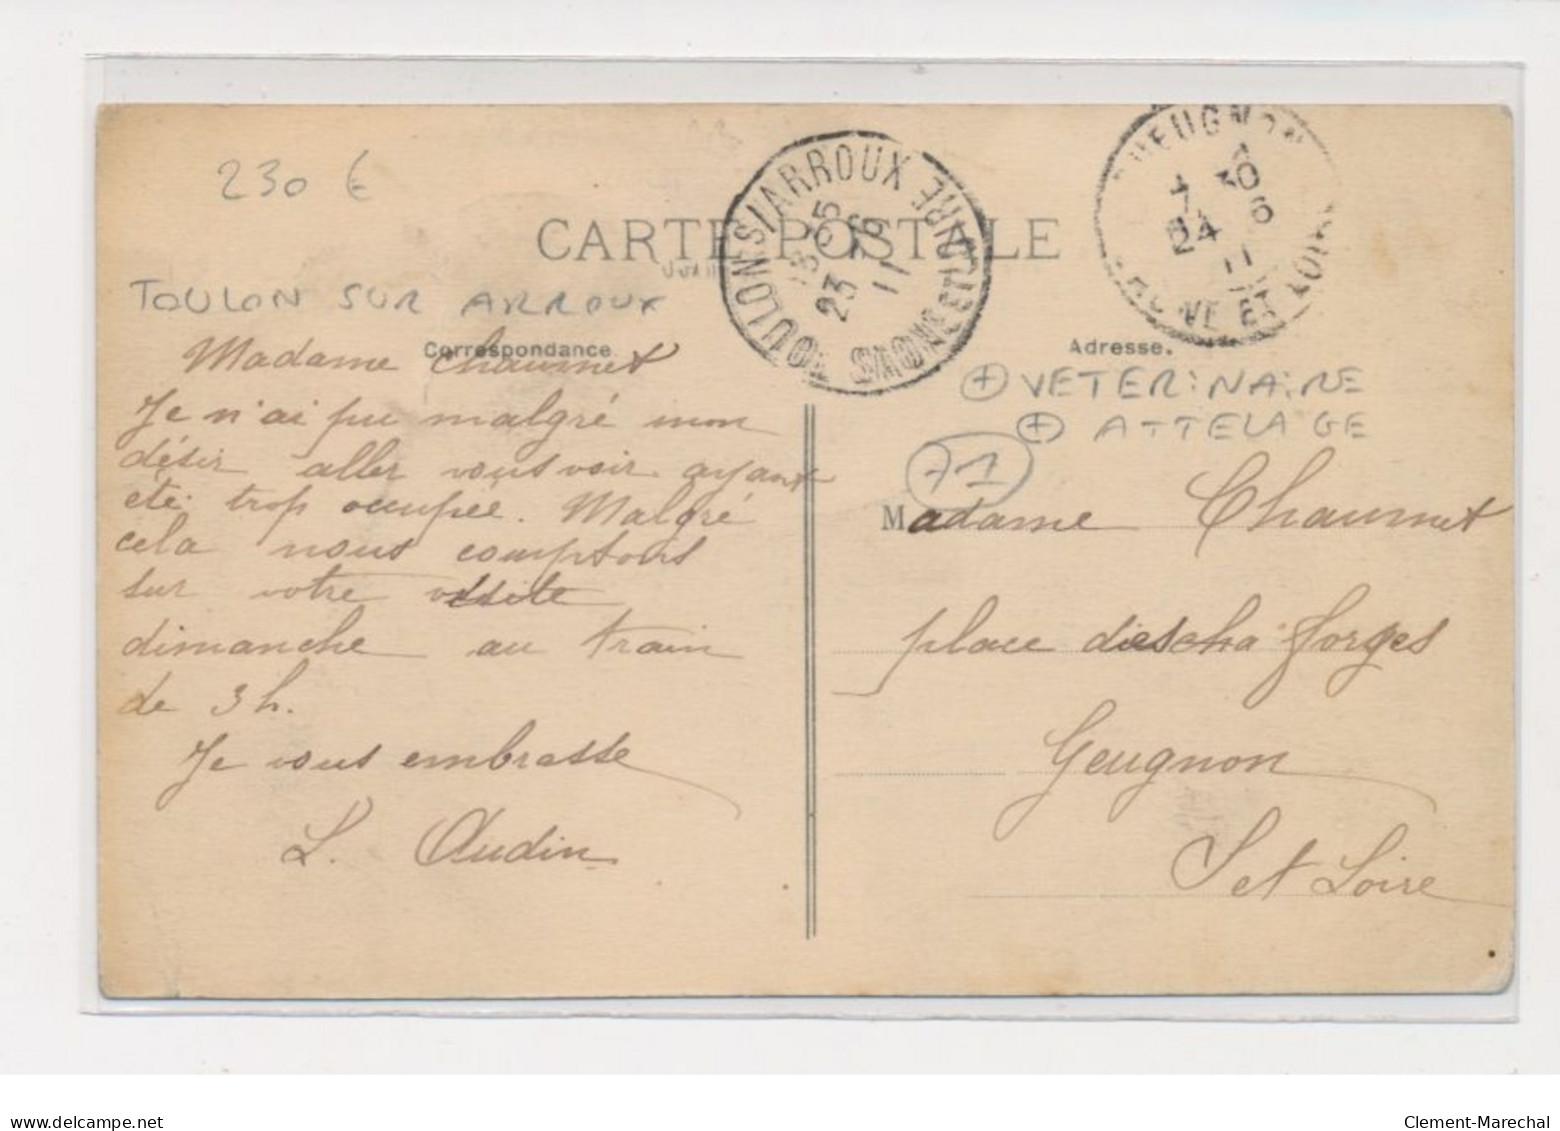 230 €
CARTE POSTALE
TOULON S/ARROUX SAONE ET LOIRE
18 35
23 - 6
11
GUEUGNON SAONE ET LOIRE
7 30
24 6
11
TOULON SUR ARROUX
Correspondance
Adresse.
Madame Chaumet
Je n'ai pu malgré mon
désir aller vous voir ayant
été trop occupée. Malgré
cela nous comptons
sur votre visite
dimanche au train
de 3 h.
Je vous embrasse
L. Audin
+ VETERINAIRE
+ ATTELAGE
71
Madame Chaumet
place des Forges
Geugnon
S et Loire
delcampe.net
Clement-Marechal